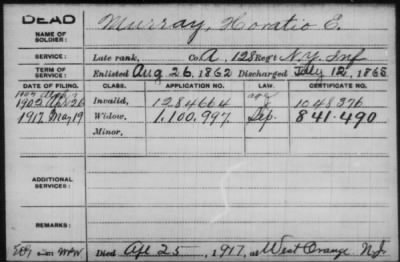 DEAD
NAME OF SOLDIER: Murray, Horatio E.
SERVICE: Late rank, Co. A, 128 Reg't N.Y. Inf
TERM OF SERVICE: Enlisted Aug 26, 1862 Discharged July 12, 1865
DATE OF FILING. CLASS. APPLICATION NO. LAW. CERTIFICATE NO.
1902 Apr 26 Invalid, 1284664 1048376
1917 May 19 Widow, 1,100,997 Sep. 841-490
Minor,
ADDITIONAL SERVICES:
REMARKS:
Died Apl 25, 1917, at West Orange N.J.